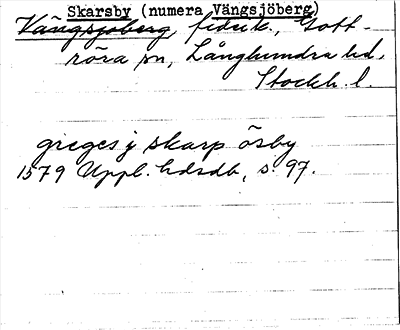 Skarsby (numera Vängsjöberg)
Vängsjöberg, fideik., Gott-
röra sn, Långhundra hd,
Stockh. l.
greges j skarp ösby
1579 Uppl. hdrdb, s. 97.